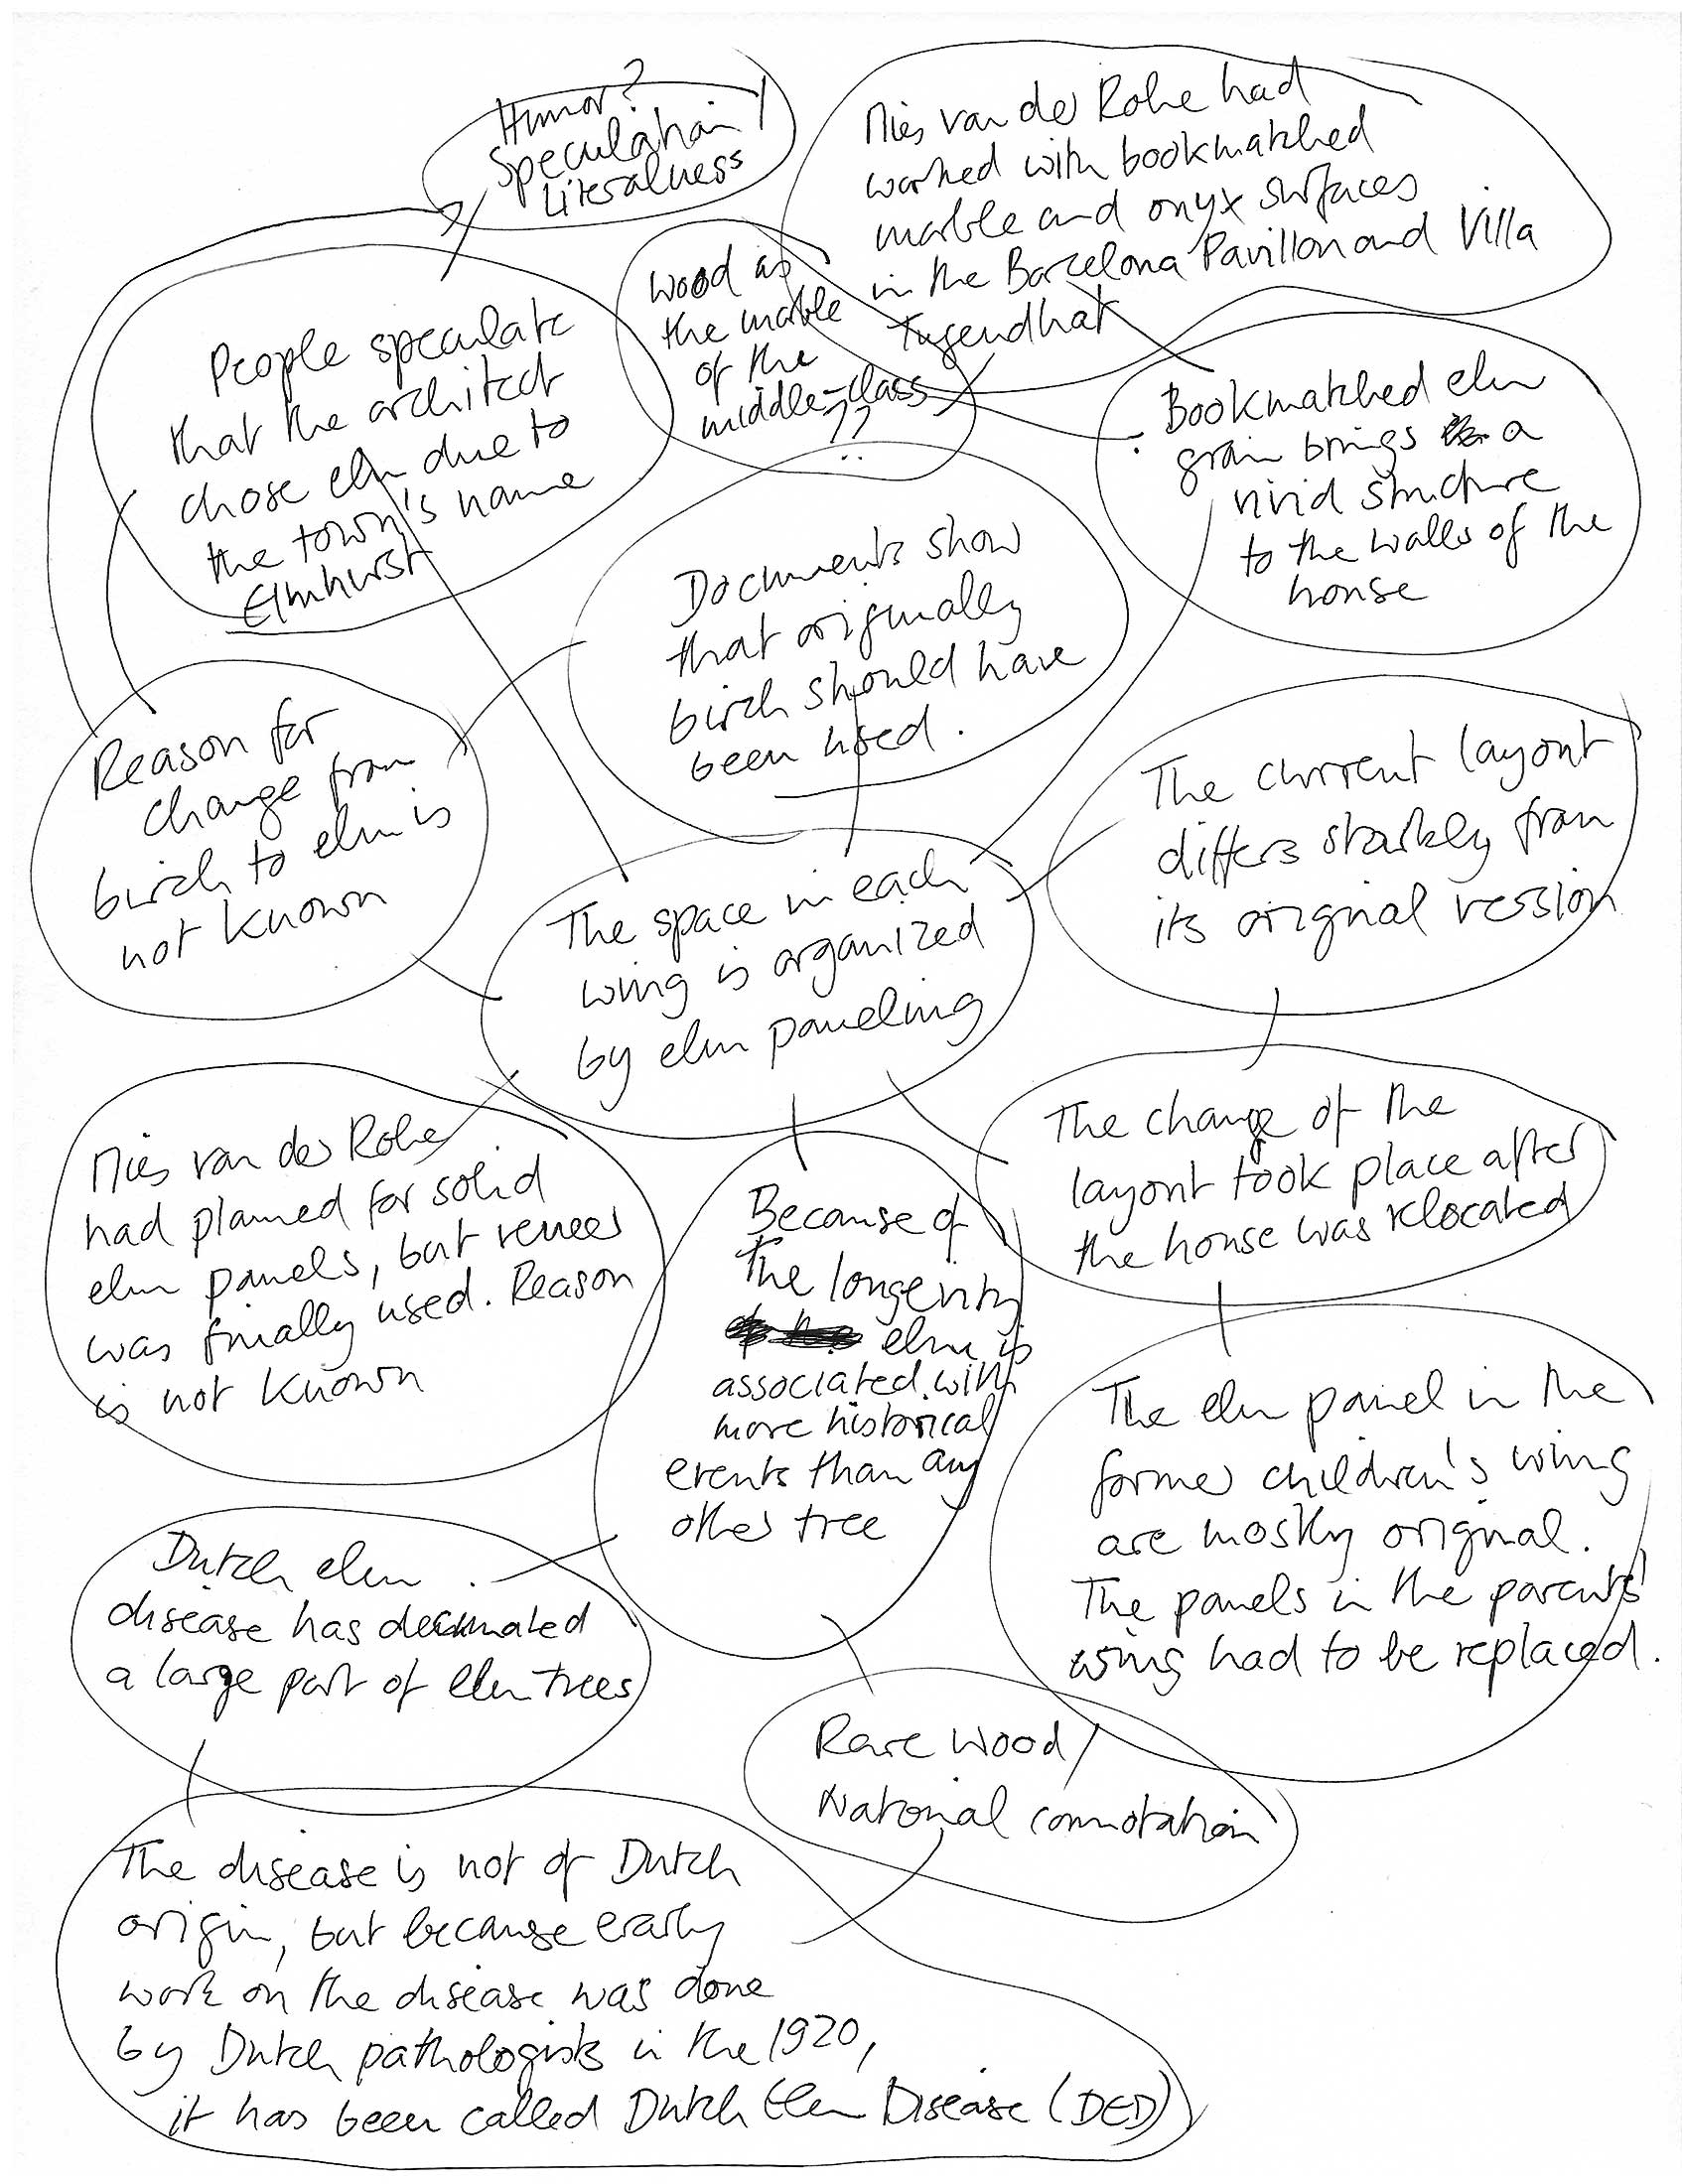 Humor?
Speculation/
Literalness
Mies van der Rohe had
worked with bookmatched
marble and onyx surfaces
in the Barcelona Pavillon and Villa
Tugendhat
Wood as
the marble
of the
middle-class
??
People speculate
that the architect
chose elm due to
the town's name
Elmhurst
Bookmatched elm
grain brings a
vivid structure
to the walls of the
house
Documents show
that originally
birch should have
been used.
Reason for
change from
birch to elm is
not known
The current layout
differs starkly from
its original version
The space in each
wing is organized
by elm paneling
Mies van der Rohe
had planned for solid
elm panels, but veneer
was finally used. Reason
is not known
Because of
the longevity
elm is
associated with
more historical
events than any
other tree
The change of the
layout took place after
the house was relocated
The elm panel in the
former children's wing
are mostly original.
The panels in the parents'
wing had to be replaced.
Dutch elm
disease has decimated
a large part of elm trees
Rare wood/
National connotation
The disease is not of Dutch
origin, but because early
work on the disease was done
by Dutch pathologists in the 1920,
it has been called Dutch Elm Disease (DED)